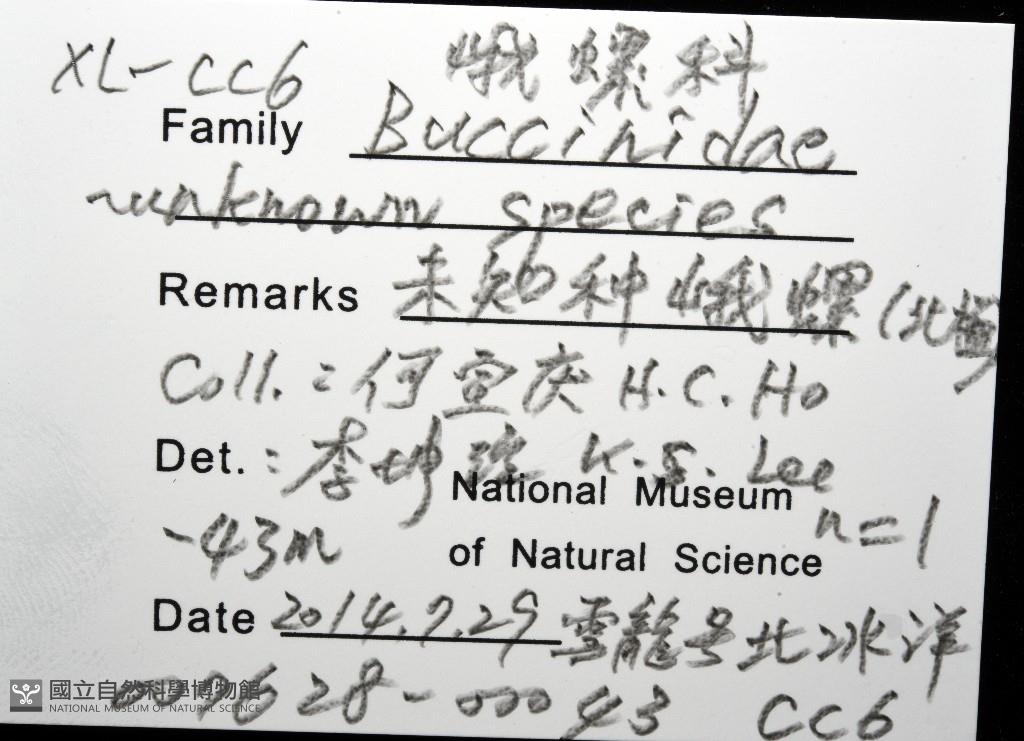 XL-CC6 峨螺科
Family Buccinidae
~unknown species
Remarks 未知种峨螺(北極)
Coll.:何宣庆 H.C.Ho
Det.:李坤 K.S.Lee
National Museum
-43m n=1
of Natural Science
Date 2014.7.29 雪龍号北冰洋
7628-00043 CC6
國立自然科學博物館
NATIONAL MUSEUM OF NATURAL SCIENCE